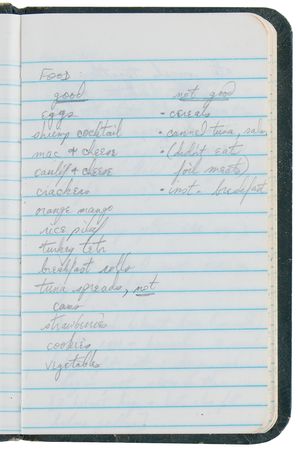 FOOD:
good
not good
eggs
• cereals
shrimp cocktail
• canned tuna, salm
mac & cheese
• (didn't eat
caulif & cheese
foil meats)
crackers
• inst. breakfast
orange mango
rice pilaf
turkey tetr
breakfast rolls
tuna spreads, not
cans
strawberries
cookies
vegetables